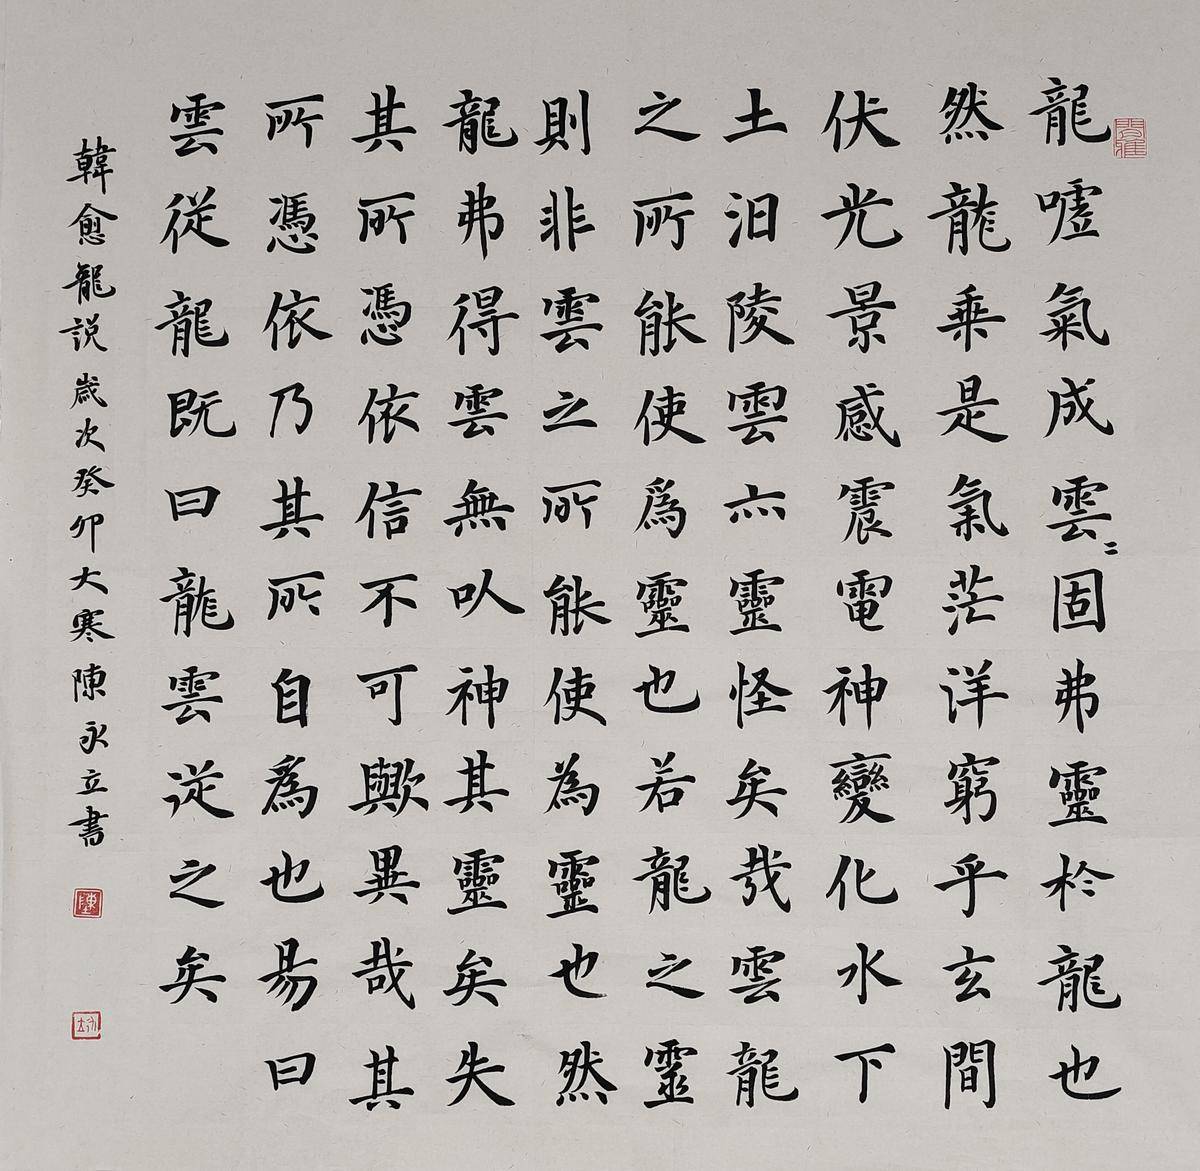 龍噓氣成雲〻固弗靈於龍也
然龍乘是氣茫洋窮乎玄間
伏光景感震電神變化水下
土汨陵雲亦靈怪矣哉雲龍
之所能使為靈也若龍之靈
則非雲之所能使為靈也然
龍弗得雲無以神其靈矣失
其所憑依信不可歟異哉其
所憑依乃其所自為也易曰
雲從龍既曰龍雲從之矣
韓愈龍說歲次癸卯大寒陳永立書